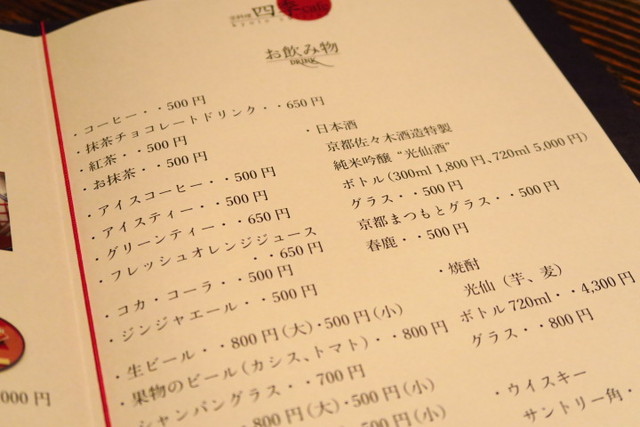 四季cafe
お飲み物
DRINK
・コーヒー・・500円
・抹茶チョコレートドリンク・・650円
・紅茶・・500円
・お抹茶・・500円
・アイスコーヒー・・500円
・アイスティー・・500円
・グリーンティー・・650円
・フレッシュオレンジジュース
・・650円
・コカ・コーラ・・500円
・ジンジャエール・・500円
・生ビール・・800円(大)・500円(小)
・果物のビール(カシス、トマト)・・800円
・シャンパングラス・・700円
800円(大)・500円(小)
500円(小)
・日本酒
京都佐々木酒造特製
純米吟醸 “光仙酒”
ボトル(300ml 1,800円、720ml 5,000円)
グラス・・500円
京都まつもとグラス・・500円
春鹿・・500円
・焼酎
光仙(芋、麦)
ボトル720ml・・4,300円
グラス・・800円
・ウイスキー
サントリー角・
000円